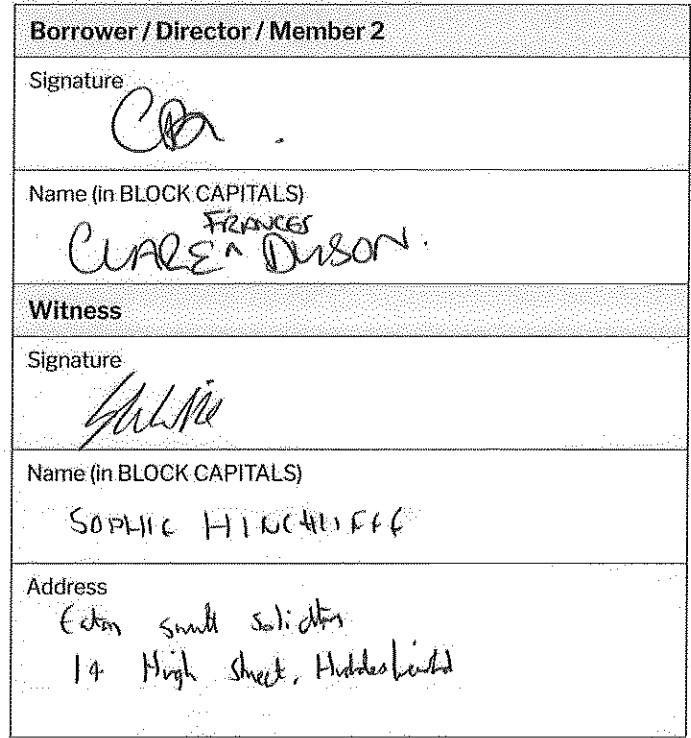 Borrower / Director / Member 2
Signature
Name (in BLOCK CAPITALS)
FRANCES
CLARE ^ DYSON.
Witness
Signature
Name (in BLOCK CAPITALS)
SOPHIE HINCHLIFFE
Address
Eaton Smith Solicitors
14 High Street, Huddersfield